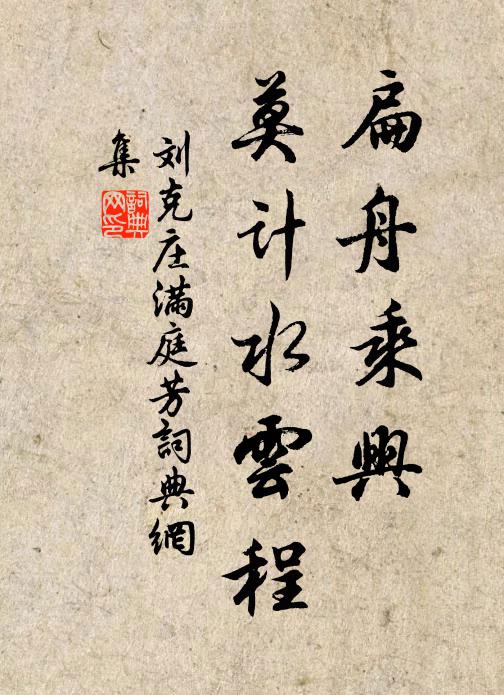 扁舟乘興
莫計水雲程
刘克庄滿庭芳詞典網
集
詞典
网印